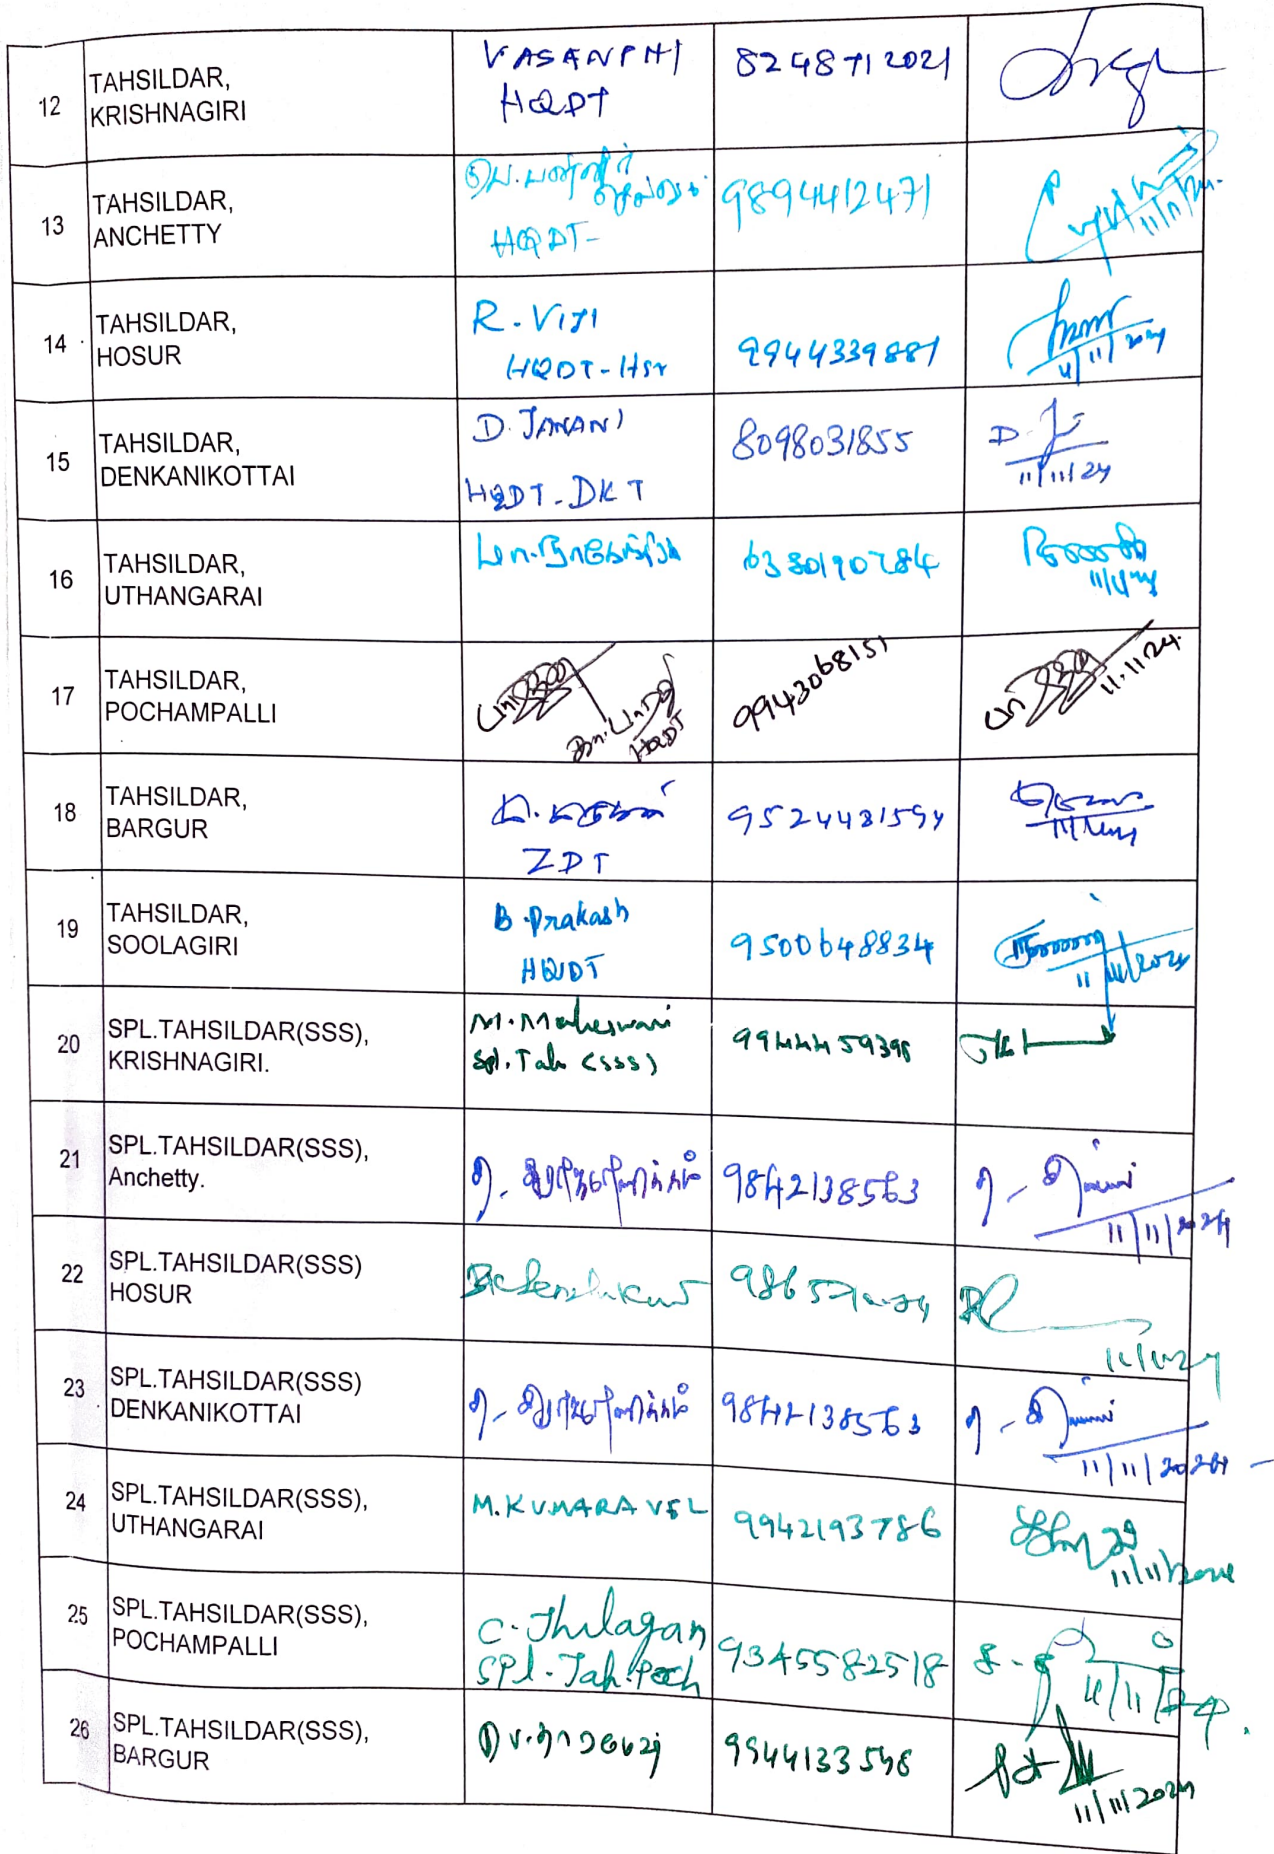 12
TAHSILDAR,
KRISHNAGIRI
VASANPHI
HQDT
8248712021
13
TAHSILDAR,
ANCHETTY
HQDT-
9894412471
14
TAHSILDAR,
HOSUR
R. VIJI
HQDT-Hsr
9944339881
11/11/2024
15
TAHSILDAR,
DENKANIKOTTAI
D. JANANI
HQDT-DKT
8098031855
D.
11/11/24
16
TAHSILDAR,
UTHANGARAI
6380190784
17
TAHSILDAR,
POCHAMPALLI
HQDT
9943068151
11.11.24.
18
TAHSILDAR,
BARGUR
ZDT
9524431594
19
TAHSILDAR,
SOOLAGIRI
B. Prakash
HQDT
9500648834
11/11/2024
20
SPL.TAHSILDAR(SSS),
KRISHNAGIRI.
M. Maheswari
Spl. Tah (SSS)
9944459398
21
SPL.TAHSILDAR(SSS),
Anchetty.
9842138563
11/11/2024
22
SPL.TAHSILDAR(SSS)
HOSUR
23
SPL.TAHSILDAR(SSS)
DENKANIKOTTAI
9842138563
11/11/2024
24
SPL.TAHSILDAR(SSS),
UTHANGARAI
M. KUMARAVEL
9942193786
11/11/2024
25
SPL.TAHSILDAR(SSS),
POCHAMPALLI
C. Thilagan
Spl. Tah. Poch
9345582518
26
SPL.TAHSILDAR(SSS),
BARGUR
9944133598
11/11/2024